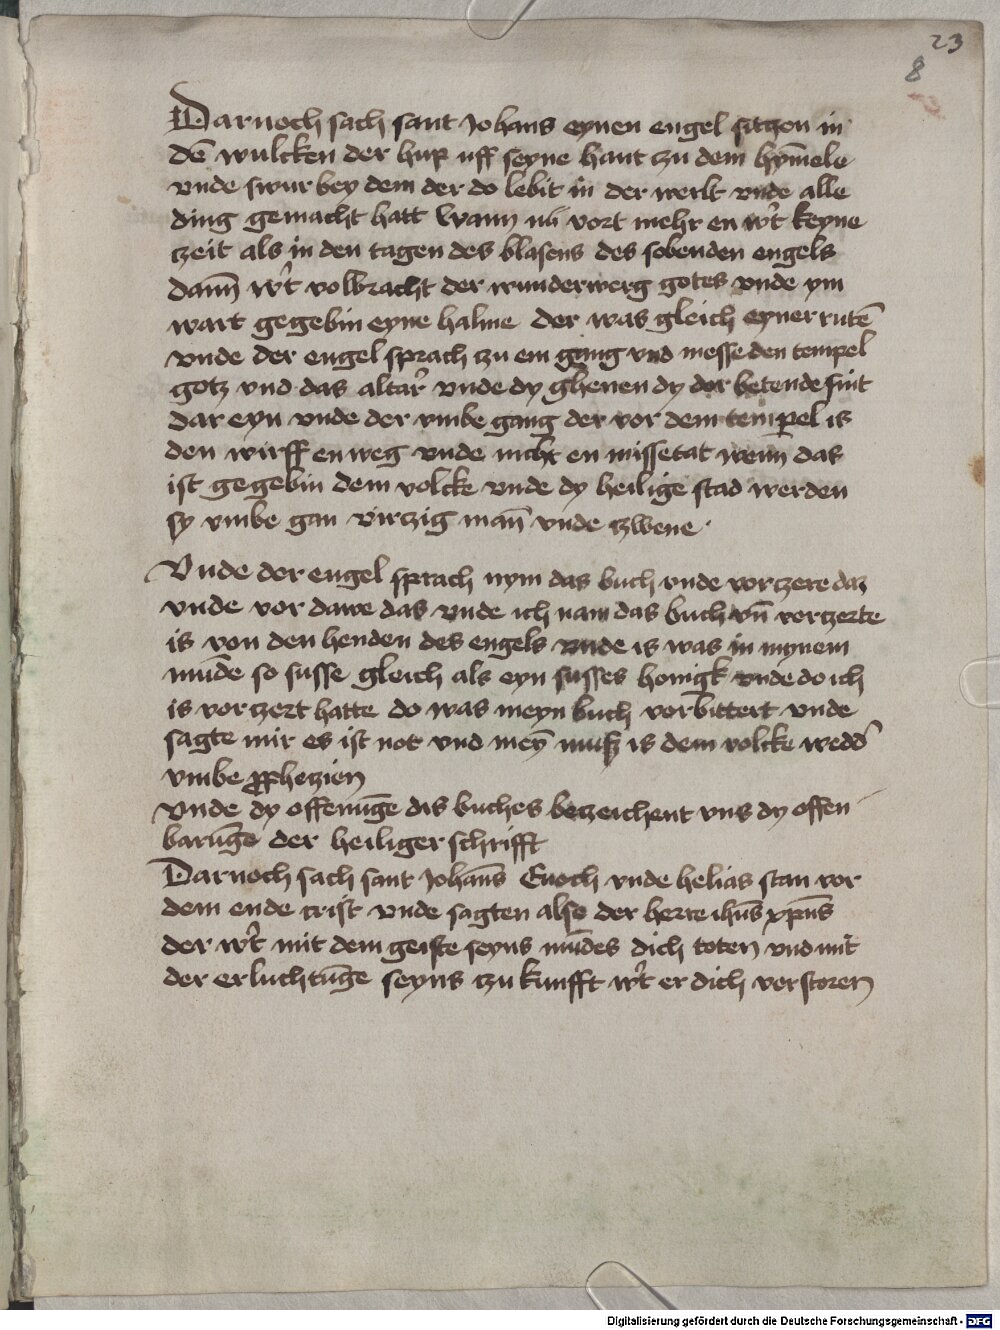 23
8
Darnoch sach sant Johans eynen engel sitzen in
dē wulcken der hup uff seyne hant zu dem hȳmele
vnde swur bey dem der do lebit in der werlt vnde alle
ding gemacht hatt Wann nū vort mehr en wʼt keyne
zeit als in den tagen des blasens des sobenden engels
dann̄ wʼt volbracht der wunderwerg gotes vnde ym
wart gegebin eyne halme der was gleich eyner rutē
vnde der engel sprach zu em gang vnd messe den tempel
gotz vnd das altarʼ vnde dy ghenen dy dor betende sint
dar eyn vnde der vmbe gang der vor dem tempel is
den wirff en weg vnde nicht en missetat wenn das
ist gegebin dem volcke vnde dy heilige stad werden
sy vmbe gan virzig man̄ vnde zwene ·
Vnde der engel sprach nym das buch vnde vorzere daz
vnde vor dawe das vnde ich nam das buch vn̄ verzerte
is von den henden des engels vnde is was in mynem
mūde so susse gleich als eyn susses honigk vnde do ich
is vorzert hatte do was meyn buch vorbittert vnde
sagte mir es ist not vnd meȳ muß is dem volcke weddʼ
vmbe ꝓphezien
vnde dy offenūge dis buches bezeichent vns dy offen
barūge der heiliger schrifft
Darnoch sach sant Johān̄s Enoch vnde helias stan vor
dem ende crist vnde sagten also der herre ihūs xpūs
der wʼt mit dem geiste seyns mūdes dich toten vnd mit
der erluchtūge seyns zu kunfft wʼt er dich verstoren
Digitalisierung gefördert durch die Deutsche Forschungsgemeinschaft - DFG